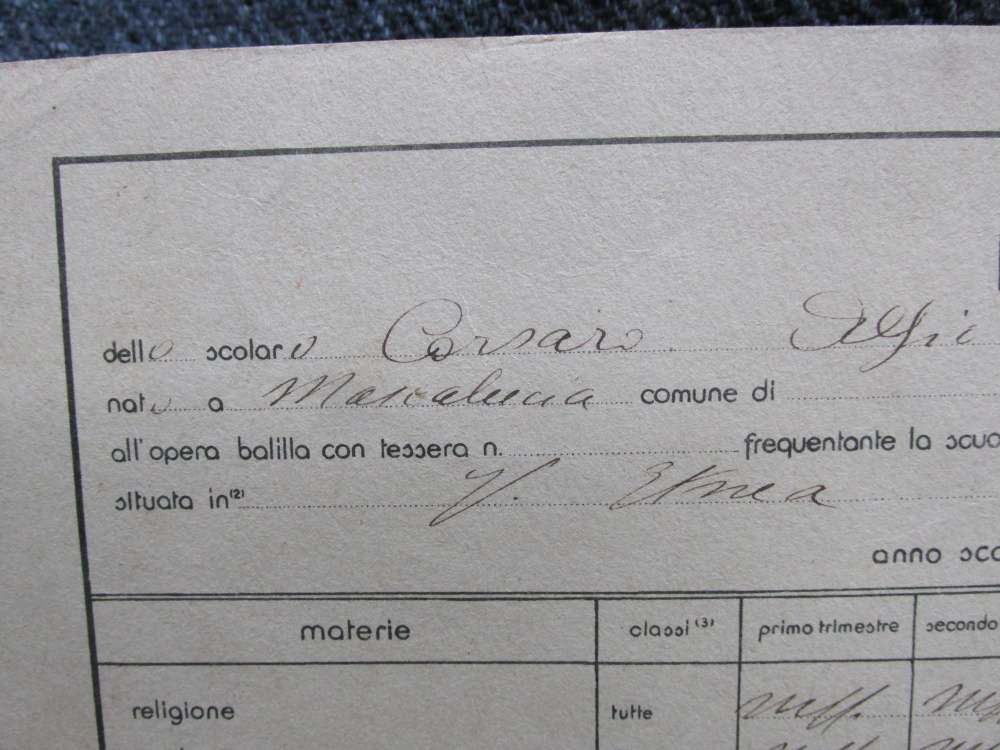 dello scolaro Corsaro Alfio
nato a Mascalucia comune di
all'opera balilla con tessera n. frequentante la scuo
situata in (2) V. Etnea
anno sco
materie classi (3) primo trimestre secondo
religione tutte suff.